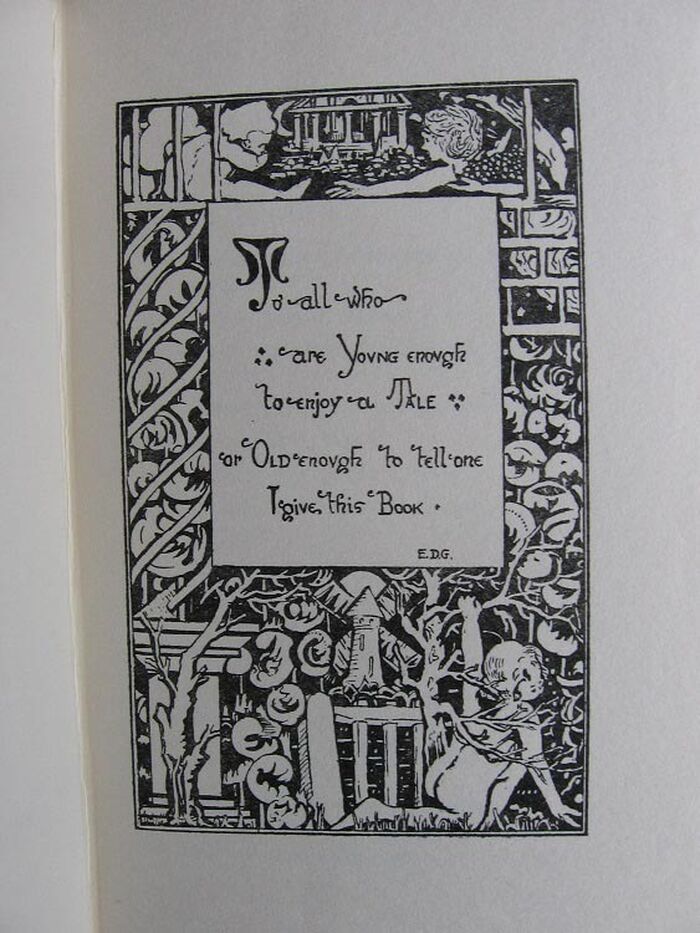 To all who
are YOVNG enovgh
to enjoy a TALE
or OLD enovgh to tell one
I give this BOOK .
E.D.G.